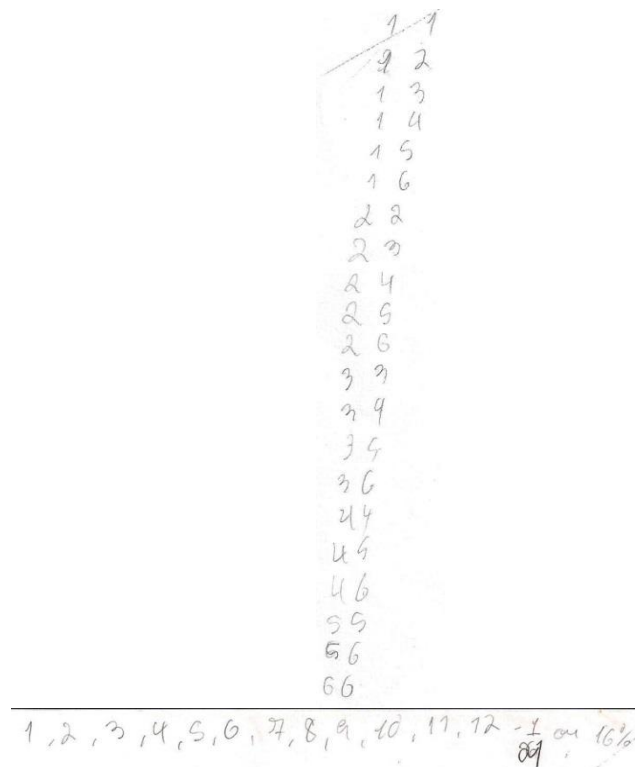 1 1
1 2
1 3
1 4
1 5
1 6
2 2
2 3
2 4
2 5
2 6
3 3
3 4
3 5
3 6
4 4
4 5
4 6
5 5
5 6
6 6
1, 2, 3, 4, 5, 6, 7, 8, 9, 10, 11, 12 - 1/ ou 16%